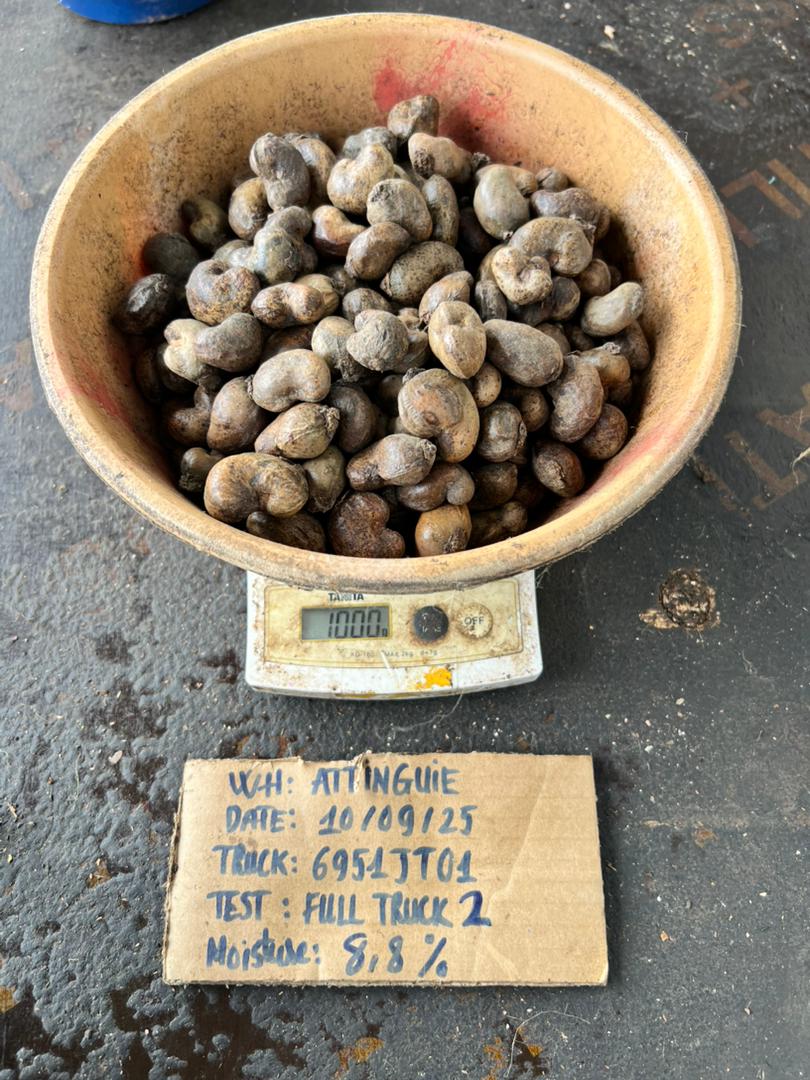 TANITA
1000g
OFF
KD-160 MAX 2kg d=1g
WH: ATTINGUIE
DATE: 10/09/25
TRUCK: 6951JT01
TEST: FULL TRUCK 2
Moisture: 8,8 %